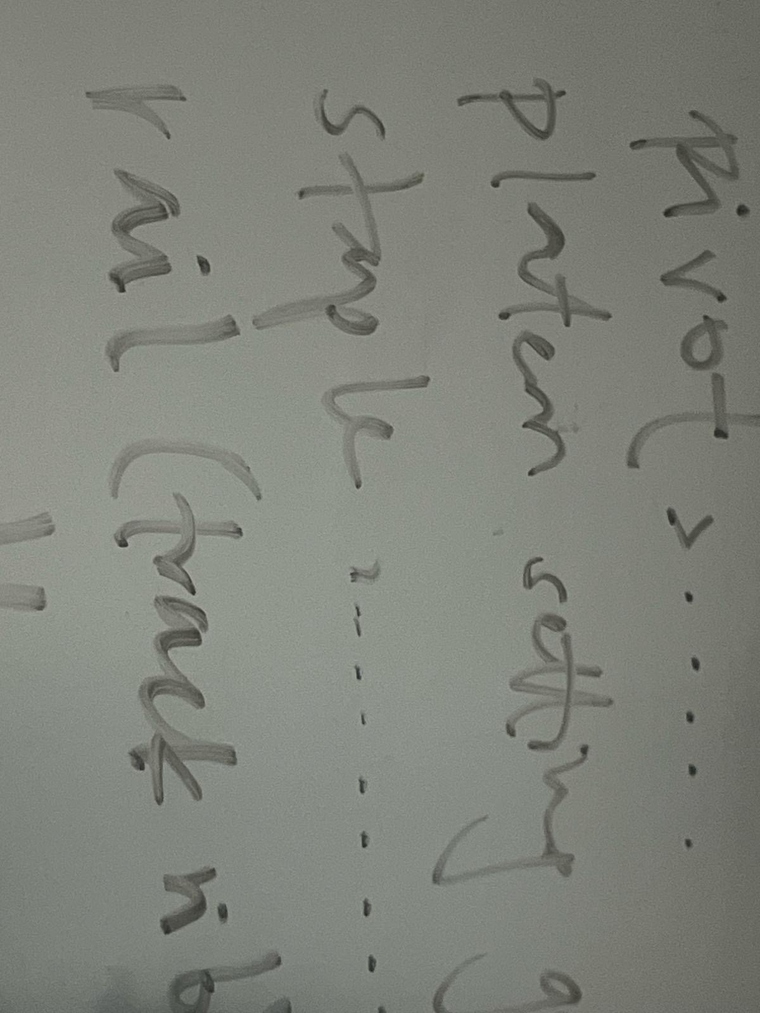 Pivot > . . . . .
platen setting
staple " - - - - - - - -
rail (track